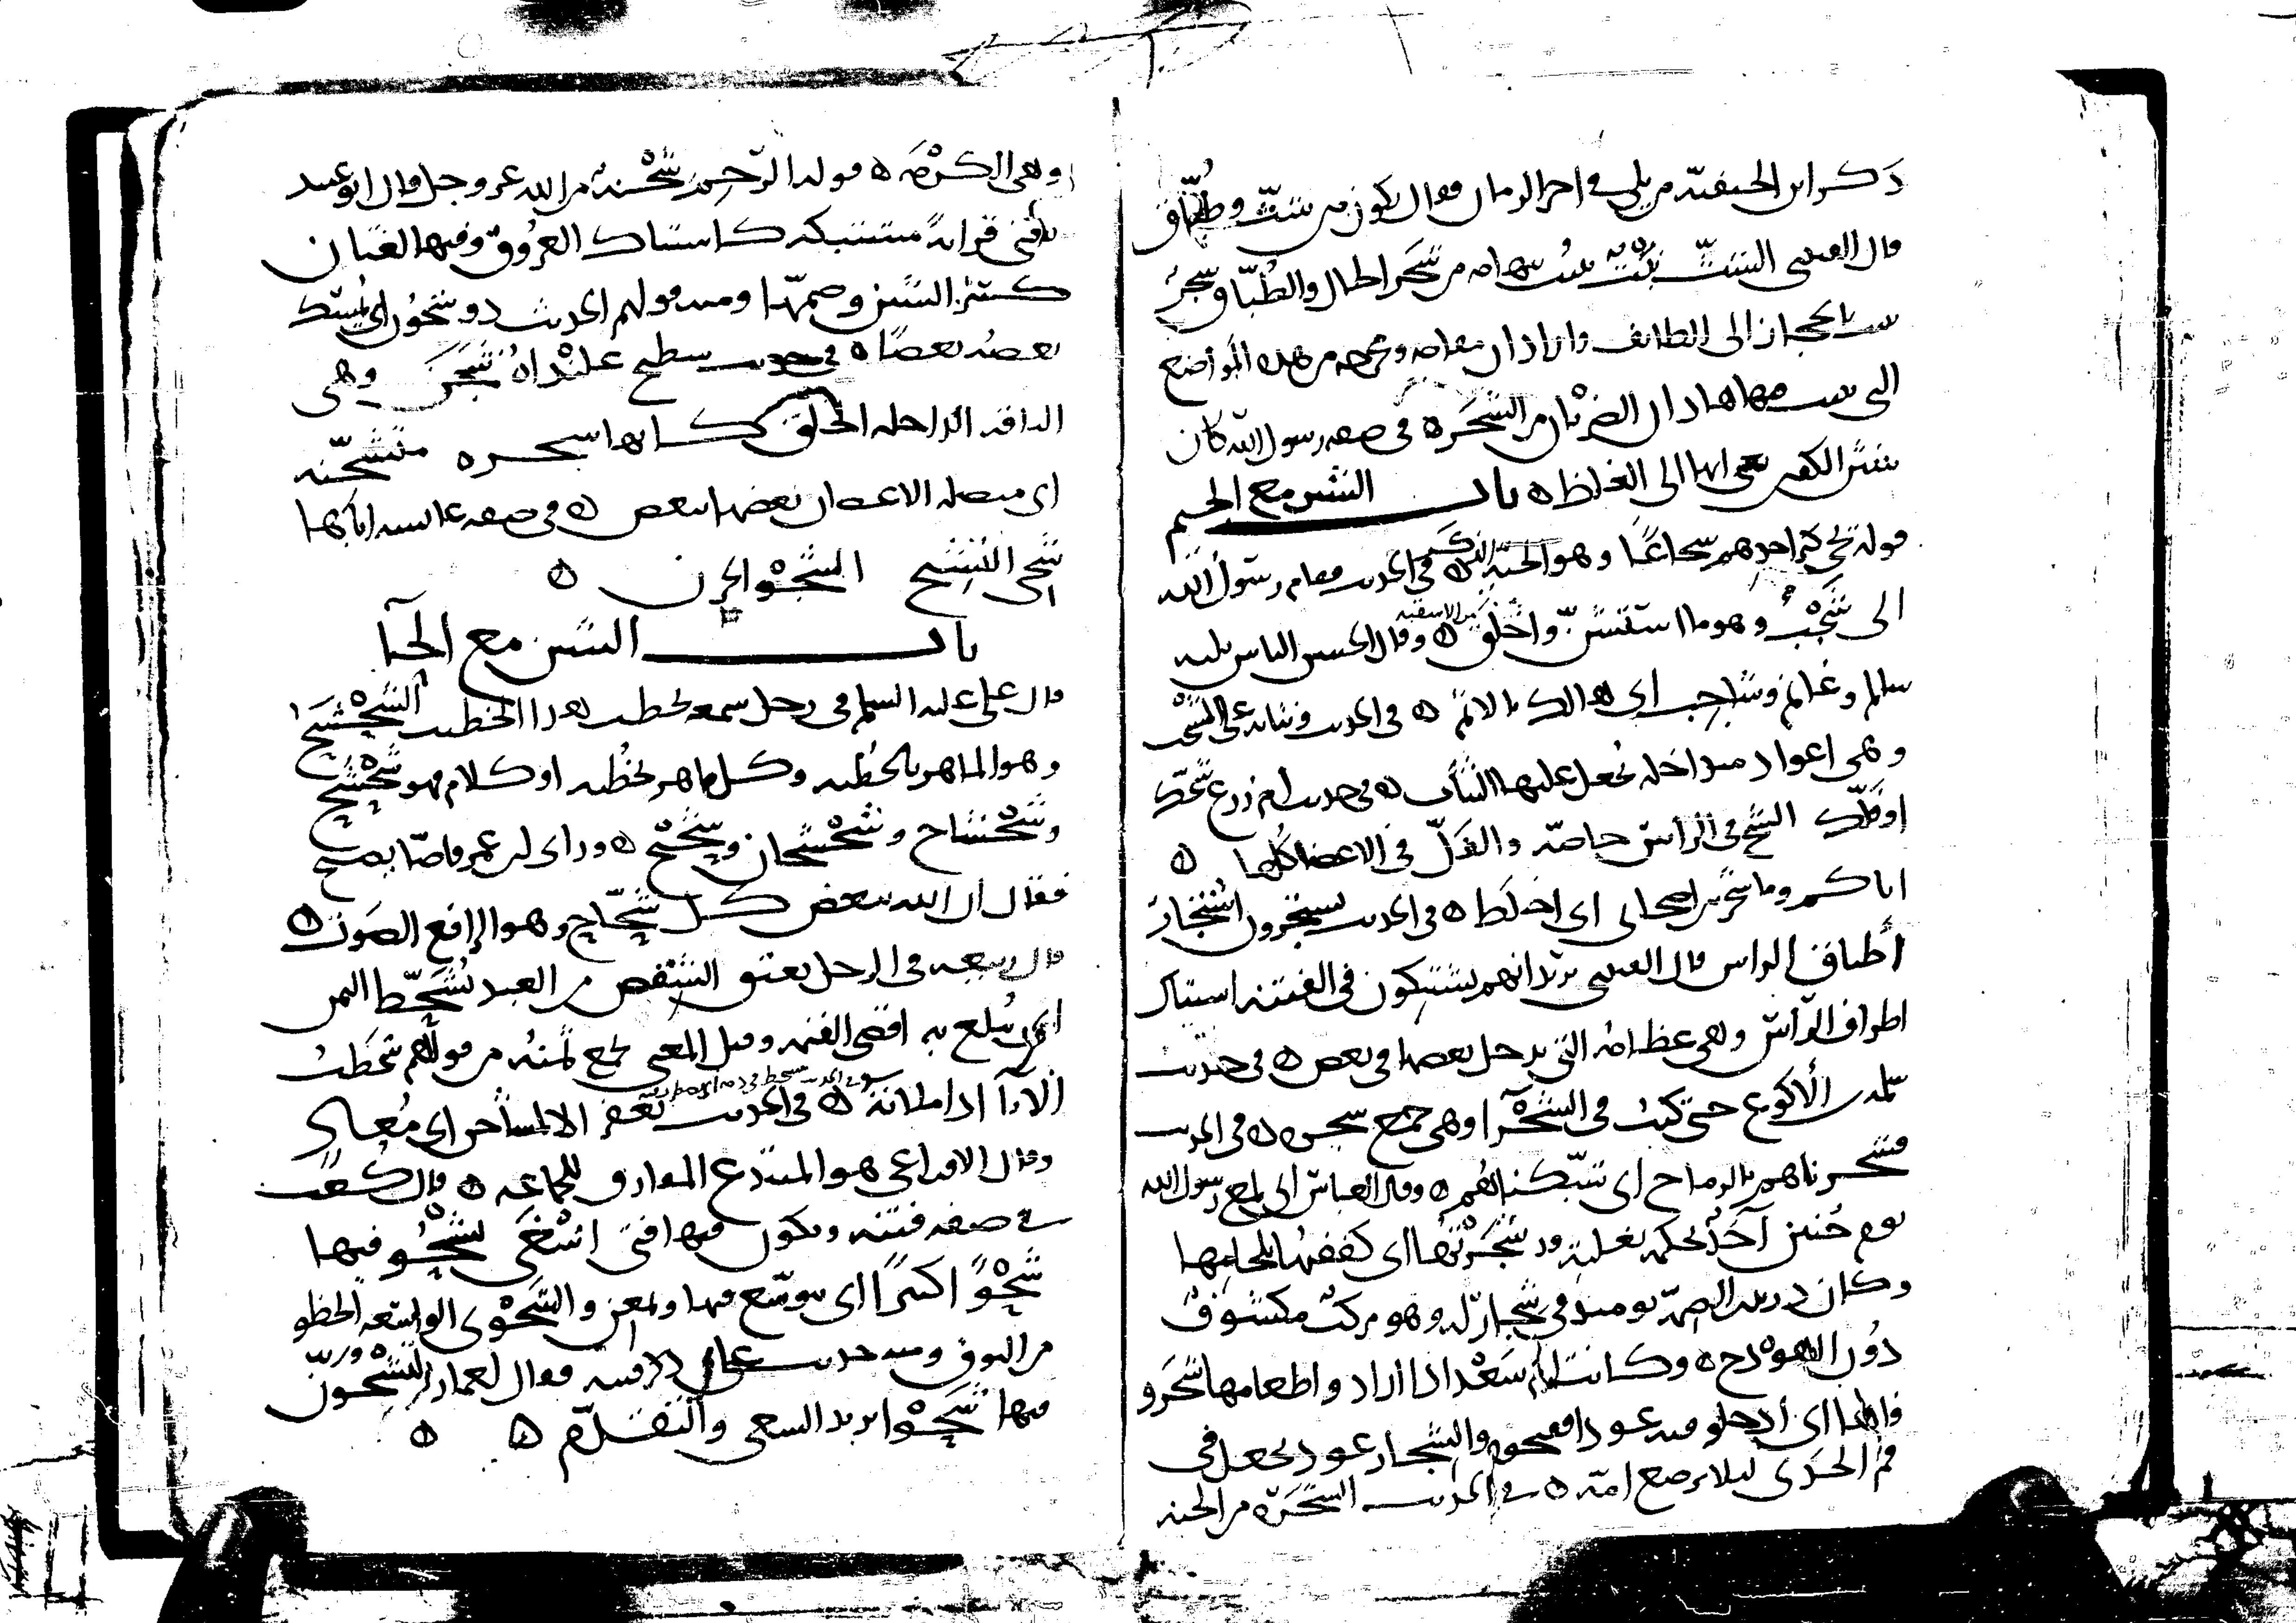 ذكر ابن الحنفية من يلي في آخر الزمان فقال يكون من شث وطُبّاق
قال القتيبي الشث نبت ينبت بتهامة من شجر الجبال والطُبّاق شجر
ينبت بالحجاز الى الطائف واراد ان مقامه ومخرجه من هذه المواضع
التي ينبت بها هاذان الضربان من الشجر ه في صفة رسول الله كان
شثن الكفين يعني انها الى الغلظ ه باب الشين مع الجيم
قوله يجي كنز احدهم شجاعا وهو الحية الذكر ه في الحديث فقام رسول الله
الى شَجْب وهو ما استشن وأخلق من الاسقية ه وقال الحسن الناس ثلاثة
سالم وغانم وشاجب اي هالك بالاثم ه في الحديث وثيابه على المشجب
وهي اعواد متداخلة تجعل عليها الثياب ه في حديث ام زرع شجّك
او فلّك الشج في الراس خاصة والفَلّ في الاعضا كلها ه
اياكم وما شجر بين اصحابي اي اختلط ه في الحديث يشتجرون اشتجار
أطباق الراس قال القتيبي يريد انهم يشتبكون في الفتنة اشتباك
اطراف الرأس وهي عظامه التي يدخل بعضها في بعض ه في حديث
سلمة بن الاكوع حتى كنت في الشَّجْرا وهي جمع شجرة ه في الحديث
فشجرناهم بالرماح اي شبّكناهم ه وقال العباس اني لمع رسول الله
يوم حُنين آخذ بحكمة بغلته وقد شَجَرْتُها اي كففتها بلجامها
وكان دريد بن الصمة يومئذ في شجار له وهو مركب مكشوف
دون الهودج ه وكانت ام سعد اذا اراد و اطعامها شجرو
فاها اي ادخلو فيه عودا ففتحوه والشجار عود يجعل في
فم الجدي ليلا يرضع امه ه في الحديث الشجرة من الجنة
وهي الكَرْمَة ه قوله الرّحم شُجْنة من الله عز وجل قال ابو عبيد
يعني قرابةً مشتبكة كاشتباك العروق وفيها لغتان
كسر الشين وضمّها ومنه قولهم الحديث ذو شجون اي يمسك
بعضه بعضا ه في حديث سطيح علنداةٌ شَجَن وهي
الناقة المتداخلة الخلق كانها شجرة متشجّنة
اي متصلة الاغصان بعضها ببعض ه في صفة عائشة اباها
شَجي النشيج الشجو الحزن ه
باب الشين مع الحآ
قال علي عليه السلم في رجل سمعه يخطب هذا الخطيب الشَّحْشَح
وهو الماهر بالخطبة وكل ماهر بخُطبة او كلام فهو شَحْشَح
وشَحْشاح وشَحْشَحان وشَحْشَح ه وراى ابن عمر قاصّا يصيح
فقال ان الله يبغض كل شحّاج وهو الرافع الصوت ه
قال ربيعة في الرجل يعتق الشقص من العبد يُشَحّط الثمن
اي يُبلغ به اقصى القيمة وقيل المعنى يجمع ثمنه من قولهم شحطت
الاناء اذا ملأته ه في الحديث يغفر الا لمشاحن اي مُعاد
وقال الاوزاعي هو المبتدع المفارق للجماعة ه قال كعب
في صفة فتنة ويكون فيها فتى يشحو فيها
شَحْوًا كثيرا اي يتوسّع فيها ويمعن والشَّحْوى الواسعة الخطو
من النوق ومنه حديث علي ذكر فتنة فقال لعمار لتشحُونّ
فيها شَحْوًا يريد السعي والتقدّم ه ه